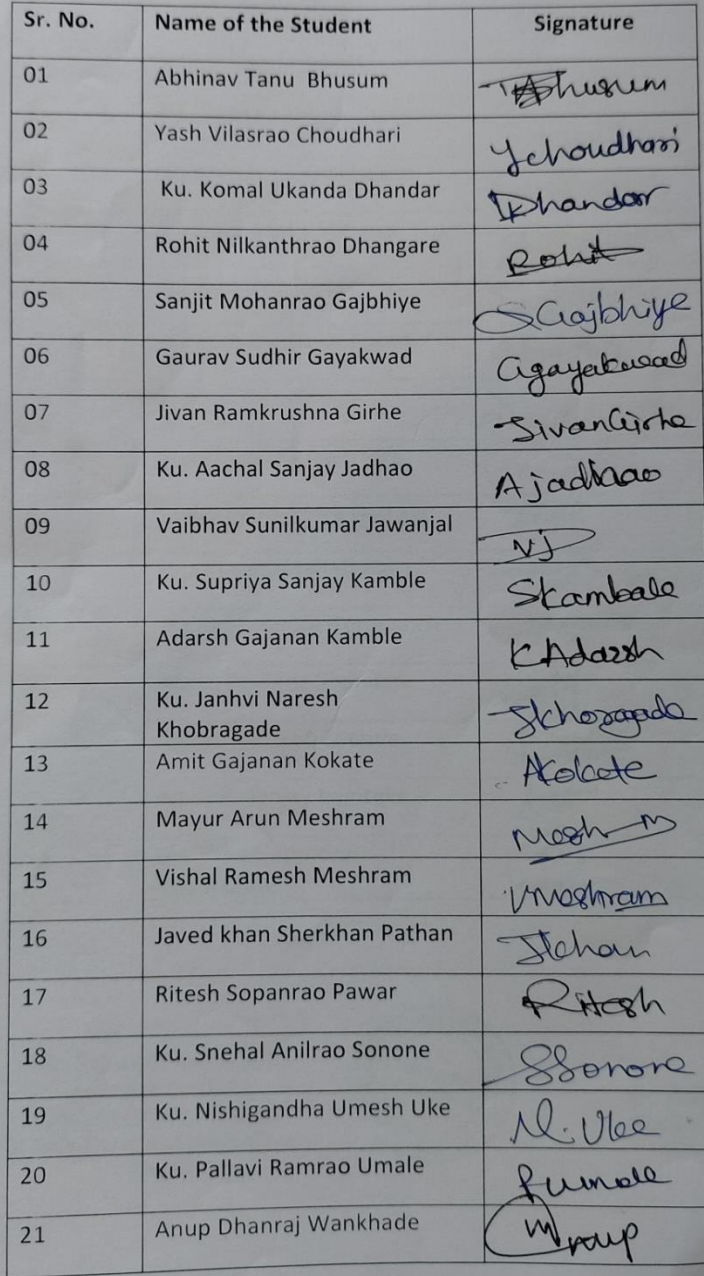 Sr. No. Name of the Student Signature
01 Abhinav Tanu Bhusum
02 Yash Vilasrao Choudhari Ychoudhari
03 Ku. Komal Ukanda Dhandar
04 Rohit Nilkanthrao Dhangare Rohit
05 Sanjit Mohanrao Gajbhiye SGajbhiye
06 Gaurav Sudhir Gayakwad Ggayakwad
07 Jivan Ramkrushna Girhe JivanGirhe
08 Ku. Aachal Sanjay Jadhao Ajadhao
09 Vaibhav Sunilkumar Jawanjal VJ
10 Ku. Supriya Sanjay Kamble Skambale
11 Adarsh Gajanan Kamble KAdarsh
12 Ku. Janhvi Naresh
Khobragade
13 Amit Gajanan Kokate AKokate
14 Mayur Arun Meshram
15 Vishal Ramesh Meshram VMeshram
16 Javed khan Sherkhan Pathan JKhan
17 Ritesh Sopanrao Pawar Ritesh
18 Ku. Snehal Anilrao Sonone SSonone
19 Ku. Nishigandha Umesh Uke N. Uke
20 Ku. Pallavi Ramrao Umale Pumale
21 Anup Dhanraj Wankhade